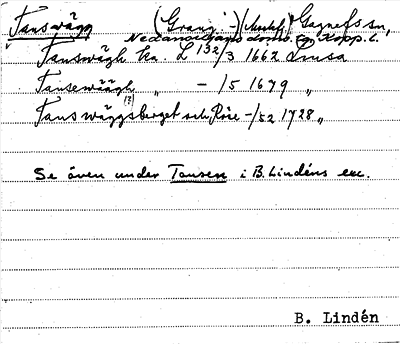 Tansvägg (Gränj -) Gagnefs sn,
Nedansiljans doms. Kopp. l.
Tanswägh ha. L 132/3 1662 Lmsa
Tansewäägh „ - /5 1679 „
Tanswäggsberget och Röse -/52 1728 „
Se även under Tansen i B. Lindéns exc.
B. Lindén